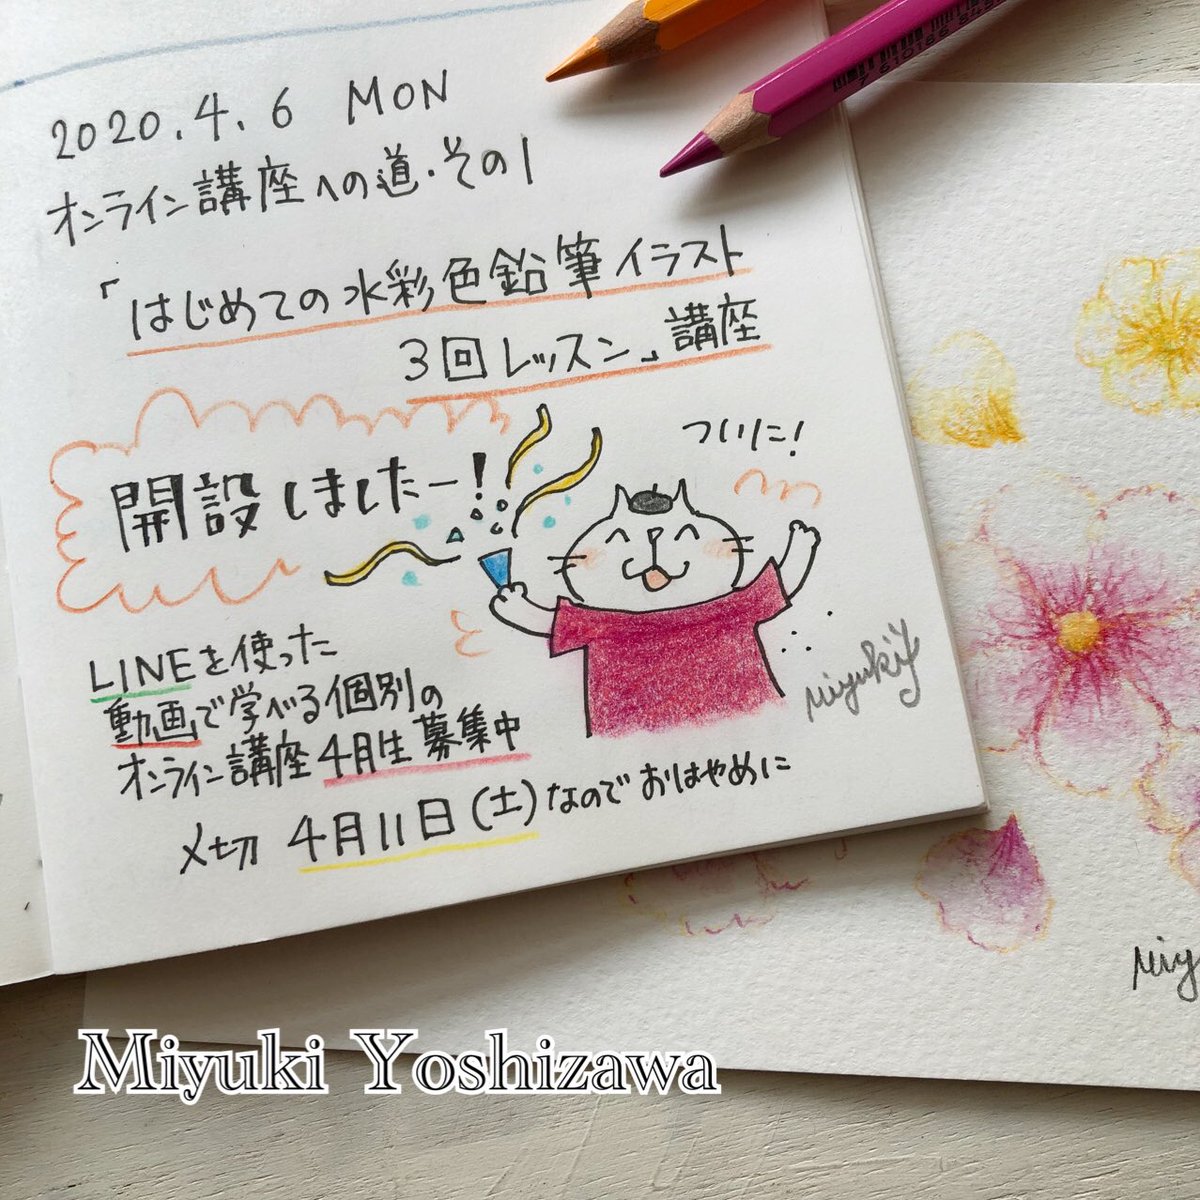 2020.4.6 MON
オンライン講座への道・その1
「はじめての水彩色鉛筆イラスト
3回レッスン」講座
開設しましたー!
ついに!
LINEを使った
動画で学べる個別の
オンライン講座4月生募集中
〆切 4月11日(土)なのでおはやめに
miyukiy
Miy
Miyuki Yoshizawa